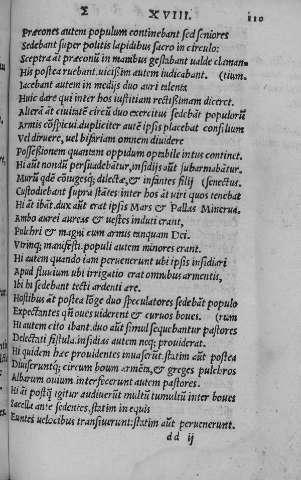 Σ XVIII. 110
Præcones autem populum continebant sed seniores
Sedebant super politis lapidibus sacro in circulo:
Sceptra āt præconū in manibus gestabāt ualde claman-
His postea ruebant.uicissim autem iudicabant. (tium.
Iacebant autem in medijs duo auri talenta
Huic dare qui inter hos iustitiam rectissimam diceret.
Alterā āt ciuitatē circū duo exercitus sedebāt populorū
Armis cōspicui.dupliciter aūt ipsis placebat consilium
Vel diruere, uel bifariam omnem diuidere
Possessionem quantam oppidum optabile intus continet.
Hi aūt nondū persuadebātur,insidijs aūt subarmabātur.
Murū qdē cōiugesq; dilectæ,& infantes filij (senectus.
Custodiebant supra stātes inter hos āt viri quos tenebat
Hi āt ibāt.dux aūt erat ipsis Mars & Pallas Minerua.
Ambo aurei aureas & uestes induti erant,
Pulchri & magni cum armis tanquam Dei.
Virinq; manifesti.populi autem minores erant.
Hi autem quando iam peruenerunt ubi ipsis insidiari
Apud fluuium ubi irrigatio erat omnibus armentis,
Ibi hi sedebant tecti ardenti ære.
Hostibus āt postea lōge duo speculatores sedebāt populo
Expectantes qñ oues viderent & curuos boues. (rum
Hi autem cito ibant.duo aūt simul sequebantur pastores
Delectati fistula.insidias autem neq; prouiderat.
Hi quidem hæc prouidentes inuaserūt.statim aūt postea
Diuiserūtq; circum boum armēta,& greges pulchros
Albarum ouium interfecerunt autem pastores.
Hi āt postq̄ igitur audiuerūt multū tumultū inter boues
Sacella ante sedentes.statim in equis
Euntes uelocibus transiuerunt:statim aūt peruenerunt.
dd ij